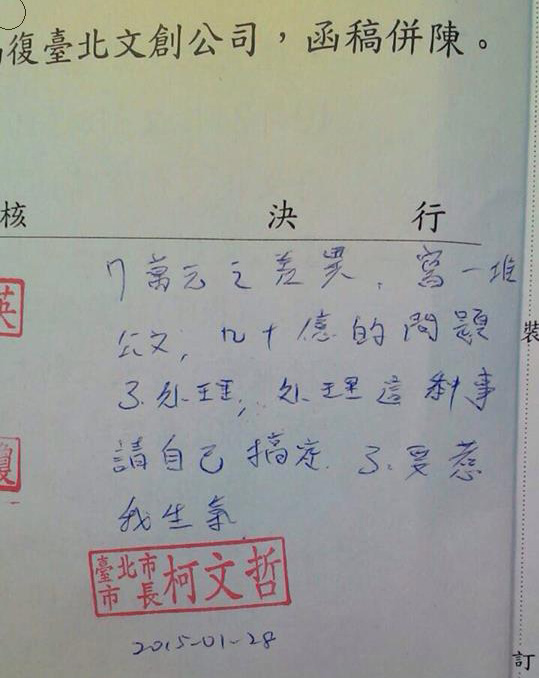 復臺北文創公司，函稿併陳。
核 決 行
7萬元之差異，寫一堆
公文，几十億的問題
不处理，处理這种事
請自己搞定．不要惹
我生氣．
臺北市市長柯文哲
2015-01-28
英
裝
訂